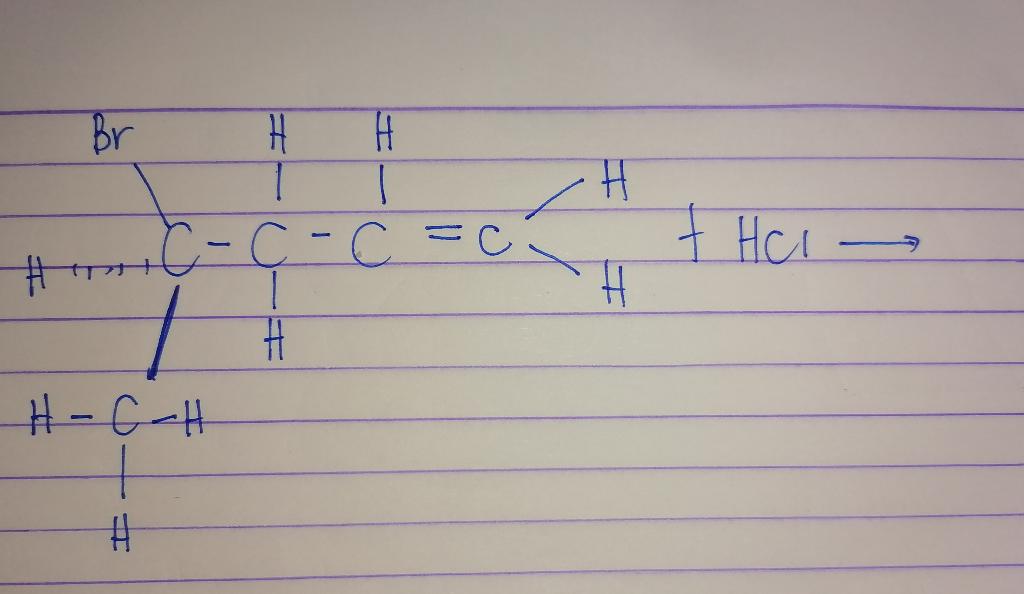 Br H H
H
C - C - C = C + HCl →
H
H H
H - C - H
H